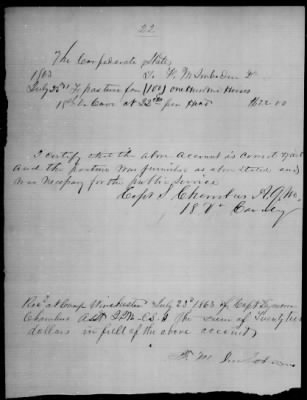 22
The Confederate States
1863 To F. M. Imboden Dr
July 23rd To pasture for (100) one hundred Horses
at 22 cts per head $22.00
I certify that the above account is correct & just
and the pasture was furnished as above stated and
was necessary for the public service
Capt S. Chambers A.Q.M.
18 Va Cavalry
Recd at Camp Winchester July 23rd 1863 of Capt Symon
Chambers Asst Q.M. C.S.A. the sum of Twenty two
dollars in full of the above account
F. M.